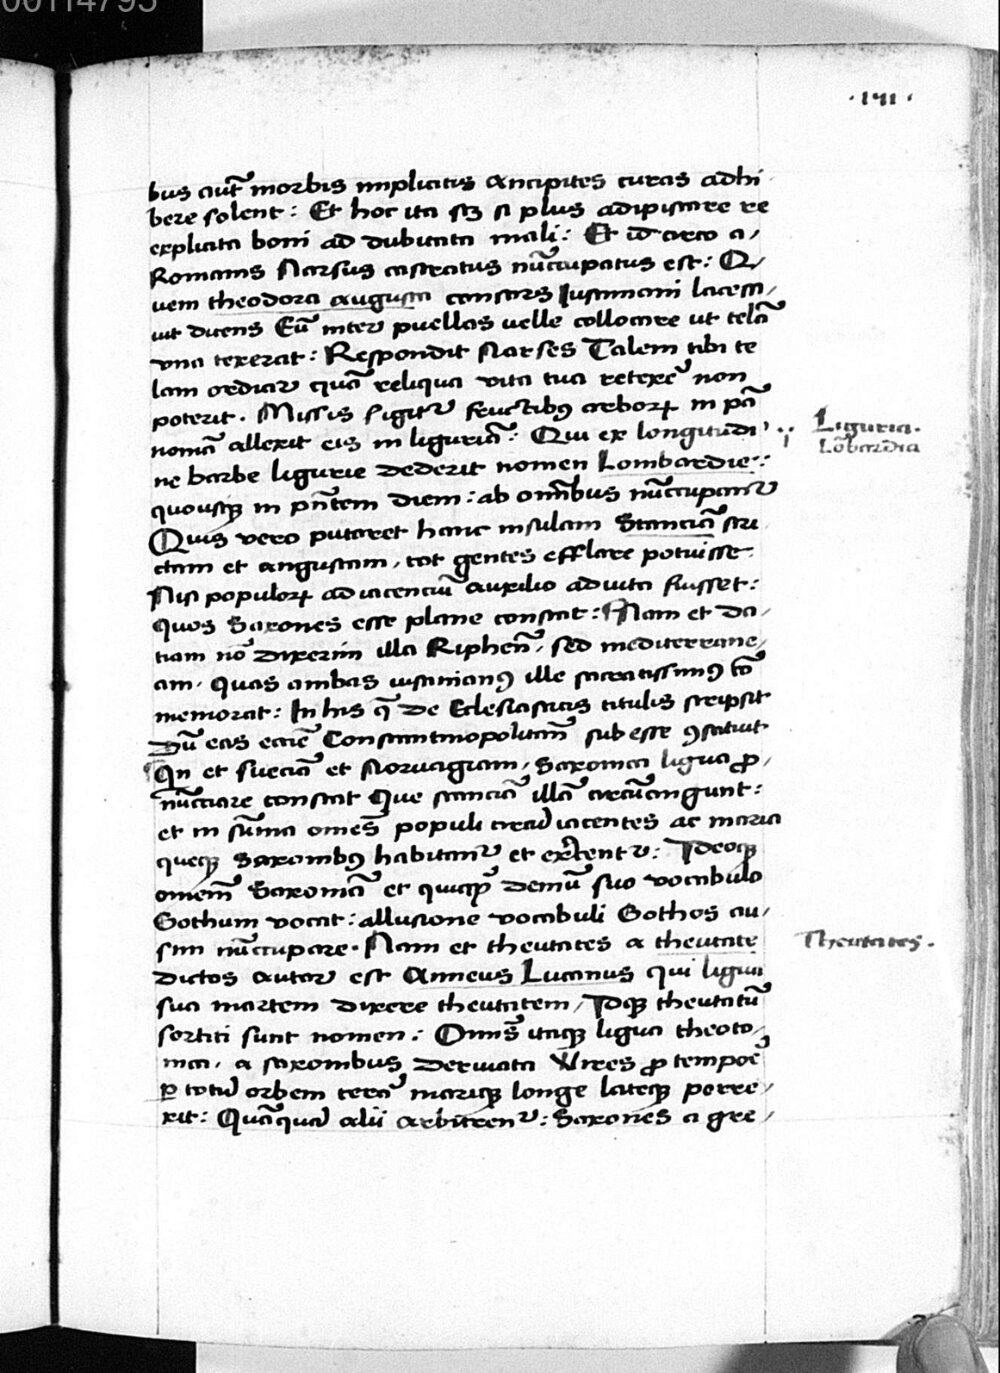 00114795
·171·
bus aūt morbis implicitis ancipites curas adhi
bere solent: Et hoc ita sꝫ si plus adipiscare re
explicata boni ad dubitata mali: Et idcirco a/
Romanis Narsus castratus nūcupatus est: Q/
uem theodora augusta consors Iustiniani lacessi/
uit dicens Eū inter puellas uelle collocare ut telā
vna texerat: Respondit Narses Talem tibi te
lam ordiar quā reliqua vita tua retexē non
poterit. Missis igitur fructibꝰ arborꝝ in pā
noniā allexit eis in liguriā: Qui ex longitudi
ne barbe ligurie dederit nomen Lombardie:
Liguria.
Lōbardia
quousqꝫ in pn̄tem diem: ab om̄ibus nūcupantur
Quis vero putaret hanc insulam Stanciā stri
ctam et angustam, tot gentes efflare potuisse
Nisi populorꝝ adiacenciū auxilio adiuta fuisset:
Quos Saxones esse plane constat: Nam et da/
tiam nō dixerim illa Riphen̄, sed mediterrane/
am. Quas ambas iustinianꝰ ille sacratissimꝰ tō
memorat: In his q̄ de Eclesiasticis titulis scripsit
Dū eas eccīe Constantinopolitan̄ subesse ꝯstatuit
Qn̄ et sueciā et Noruagiam, Saxonica ligua ꝓ/
nūctiare constat Que stanciā illā circūcingunt:
et in sūma omēs populi circūiacentes ac maria
queqꝫ Saxonibꝰ habitantur et exercentur: Ideoqꝫ
omnem Saxoniā et quicqꝫ demū suo vocabulo
Gothum vocat: allusione vocabuli Gothos au/
sim nūcupare. Nam et theutates a theutate
Theutates.
dictos autor est Anneus Lucanus qui ligua
sua martem dixere theutatem, Idqꝫ theutatū
sortiti sunt nomen: Omīs itaqꝫ ligua theoto/
nica, a saxonibus deriuata Vires ꝓ tempoē
ꝑ totū orbem terrā mariqꝫ longe lateqꝫ porre/
xit: Quāquā alii arbitrentur: Saxones a gre/